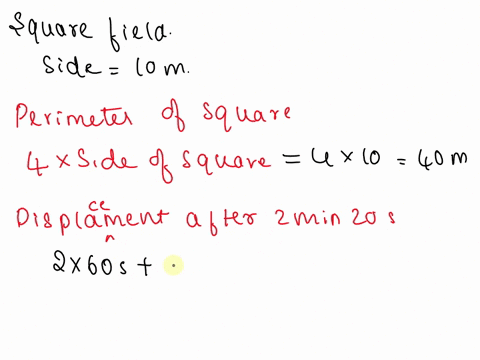 Square field.
Side = 10 m.
Perimeter of square
4 × Side of square = 4 × 10 = 40 m
Displacement after 2 min 20 s
2 × 60 s +